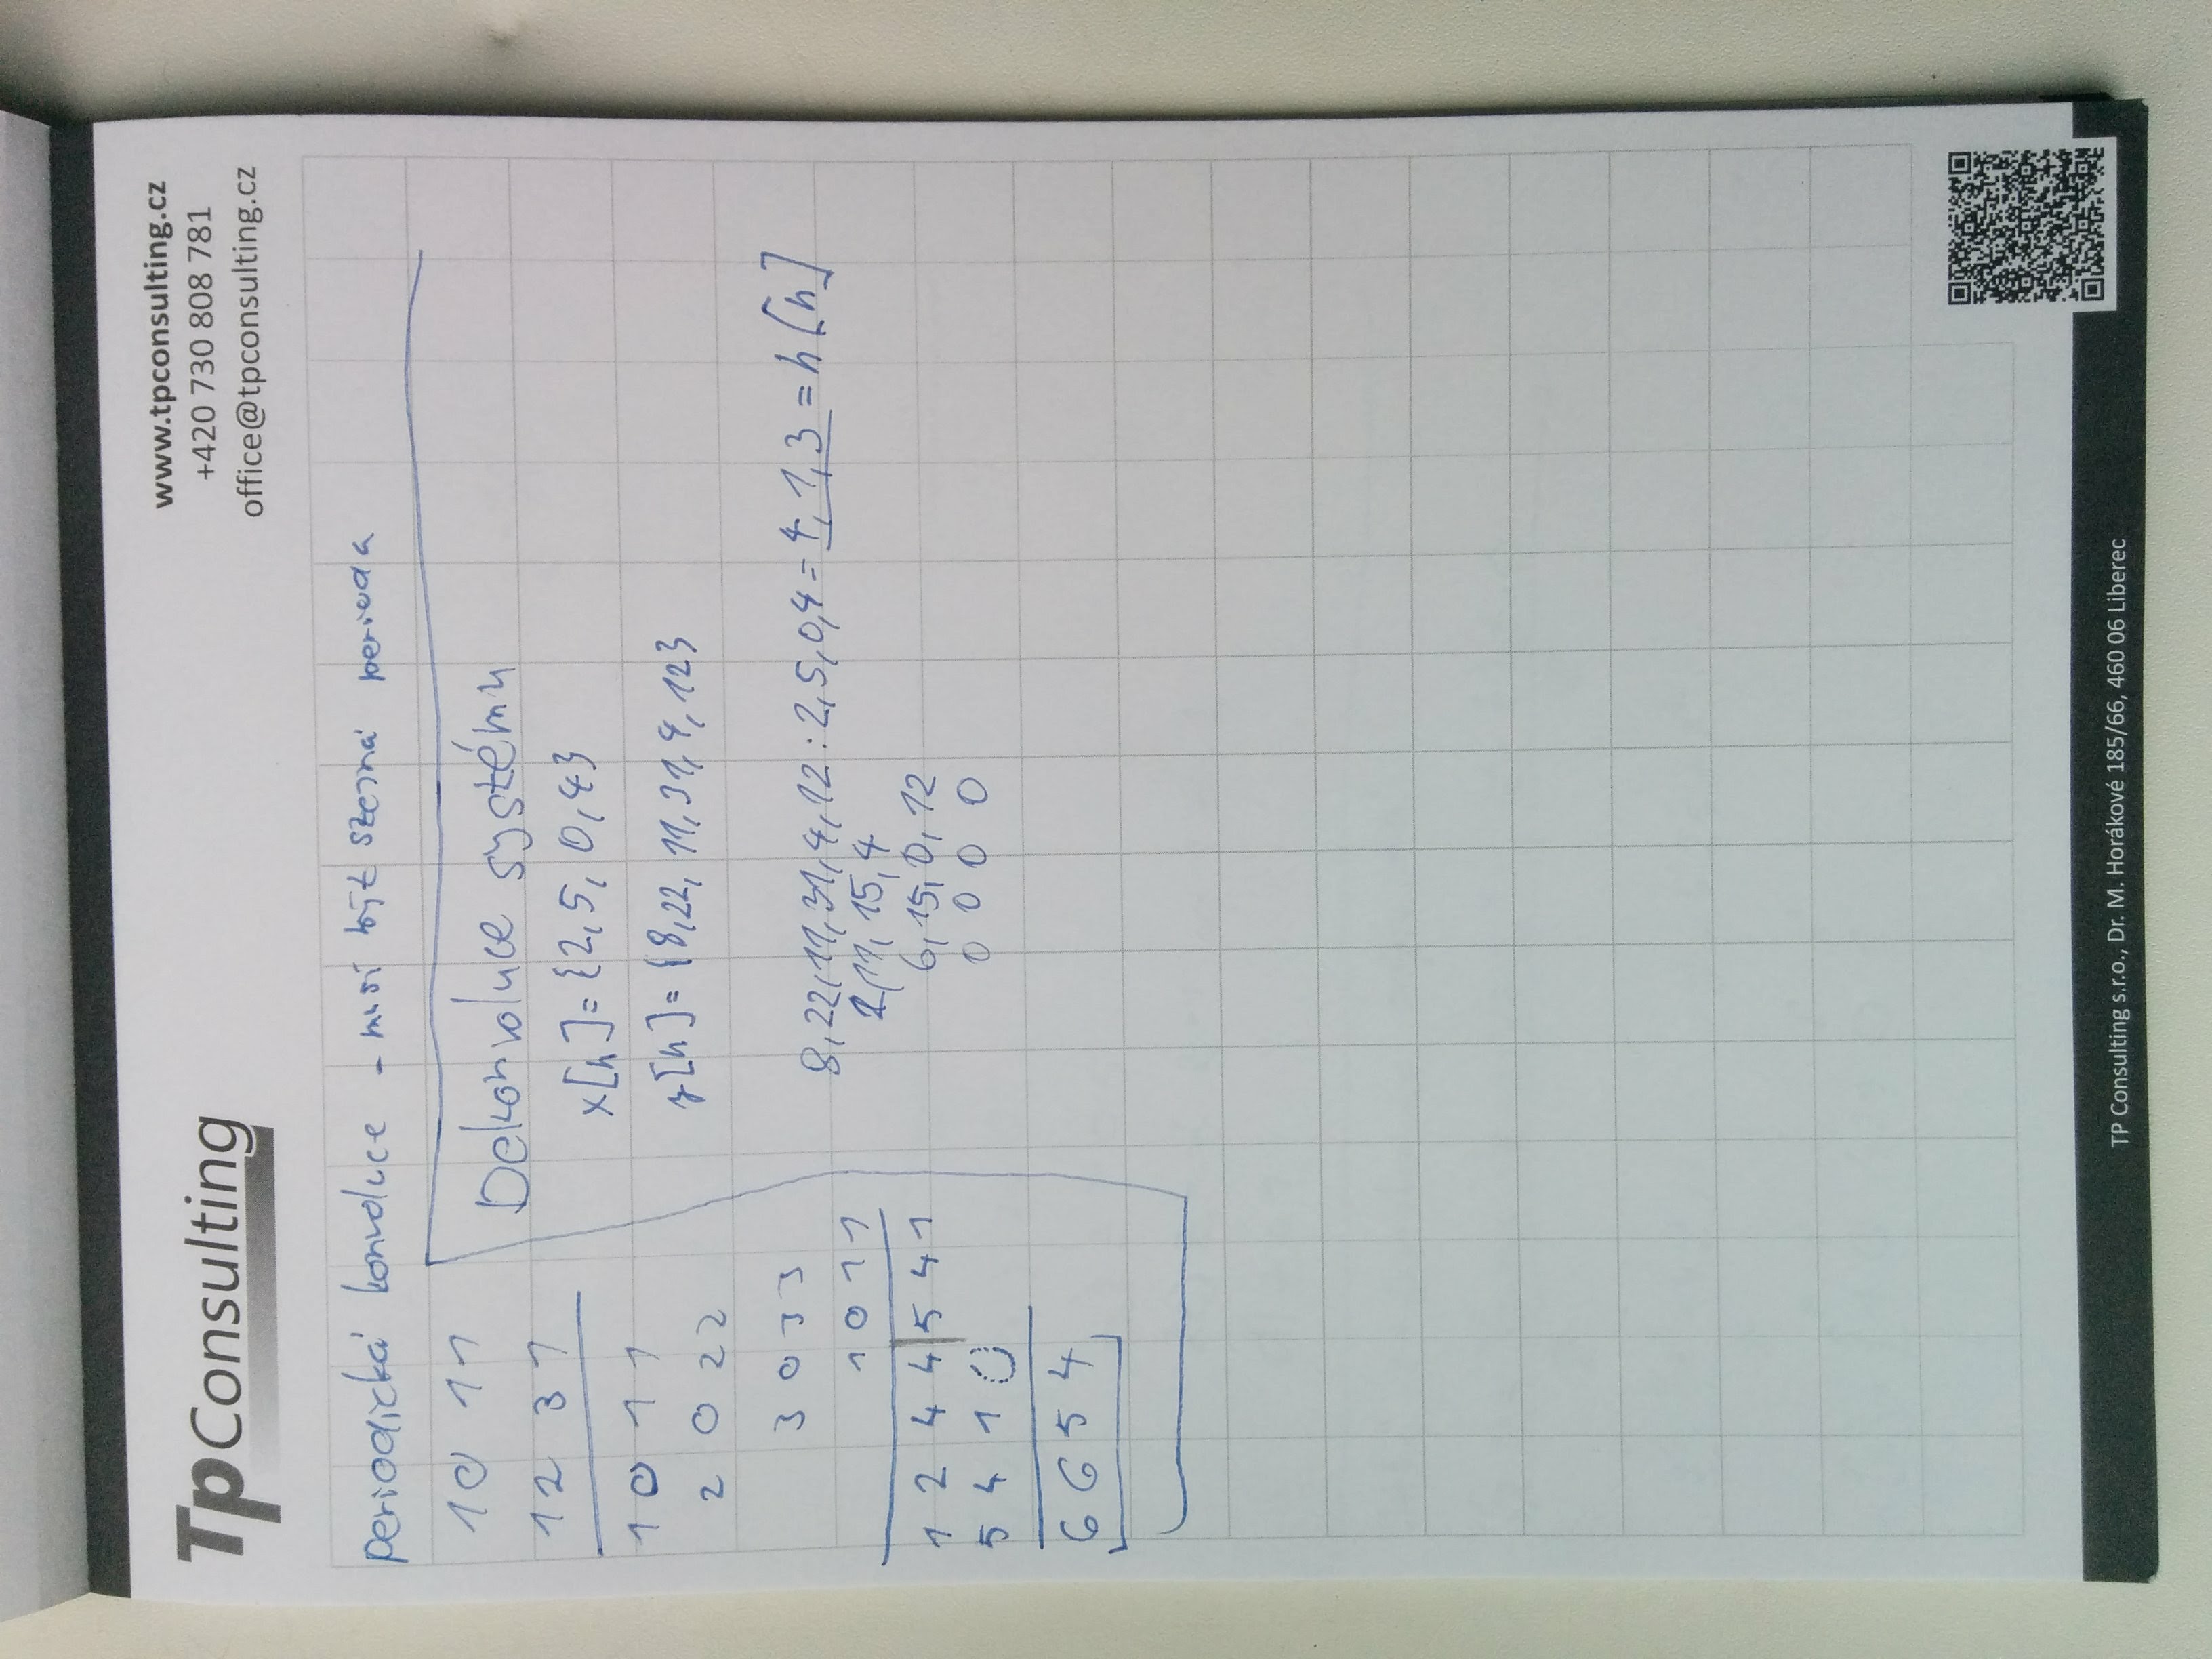 TpConsulting
www.tpconsulting.cz
+420 730 808 781
office@tpconsulting.cz
periodická konvoluce - musí být stejná perioda
1 0 1 1
1 2 3 1
1 0 1 1
2 0 2 2
3 0 3 3
1 0 1 1
1 2 4 4 5 4 1
5 4 1 0
6 6 5 4
Dekonvoluce systému
x[n] = {2, 5, 0, 4}
y[n] = {8, 22, 11, 31, 4, 12}
8, 22, 11, 31, 4, 12 : 2, 5, 0, 4 = 4, 1, 3 = h[n]
2, 11, 15, 4
6, 15, 0, 12
0 0 0 0
TP Consulting s.r.o., Dr. M. Horákové 185/66, 460 06 Liberec